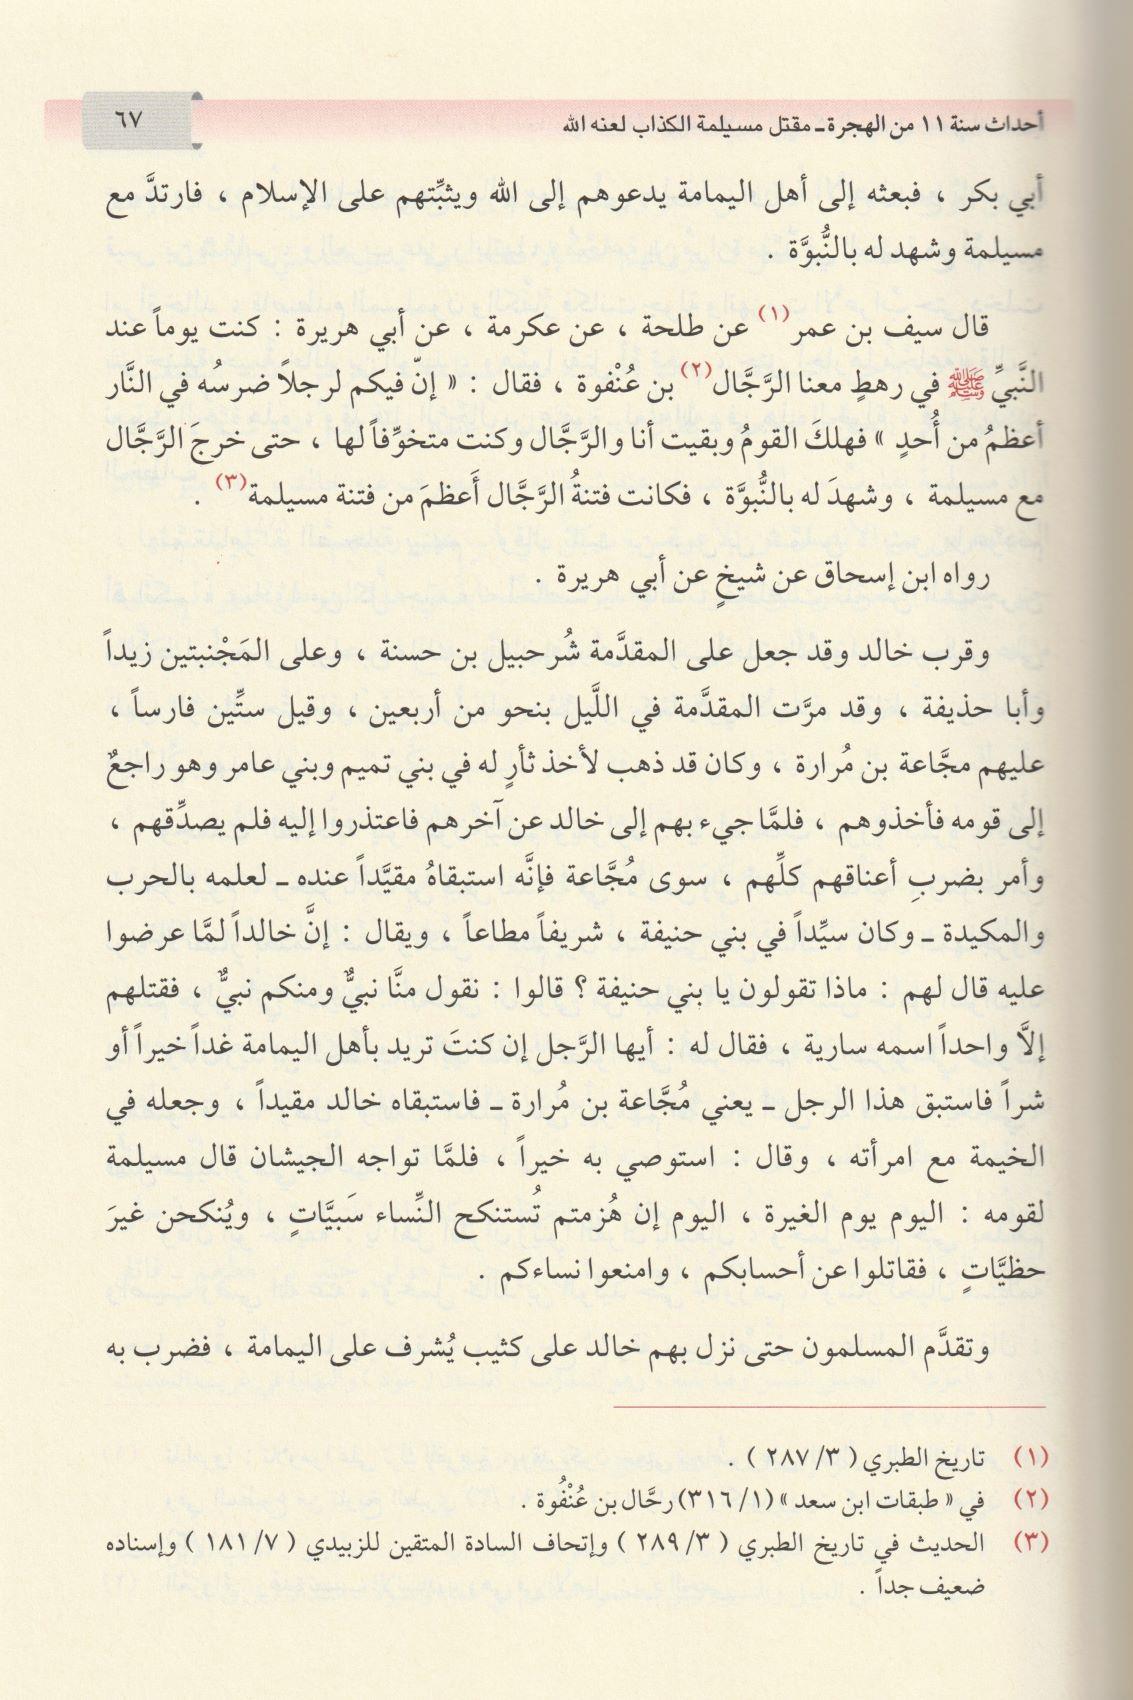 أحداث سنة ١١ من الهجرة ـ مقتل مسيلمة الكذاب لعنه الله
٦٧
أبي بكر ، فبعثه إلى أهل اليمامة يدعوهم إلى الله ويثبِّتهم على الإسلام ، فارتدَّ مع
مسيلمة وشهد له بالنُّبوَّة .
قال سيف بن عمر(١) عن طلحة ، عن عكرمة ، عن أبي هريرة : كنت يوماً عند
النَّبيِّ ﷺ في رهطٍ معنا الرَّجَّال(٢) بن عُنْفوة ، فقال : « إنّ فيكم لرجلاً ضرسُه في النَّار
أعظمُ من أُحدٍ » فهلكَ القومُ وبقيت أنا والرَّجَّال وكنت متخوِّفاً لها ، حتى خرجَ الرَّجَّال
مع مسيلمة ، وشهدَ له بالنُّبوَّة ، فكانت فتنةُ الرَّجَّال أَعظمَ من فتنة مسيلمة(٣) .
رواه ابن إسحاق عن شيخٍ عن أبي هريرة .
وقرب خالد وقد جعل على المقدَّمة شُرحبيل بن حسنة ، وعلى المَجْنبتين زيداً
وأبا حذيفة ، وقد مرَّت المقدَّمة في اللَّيل بنحو من أربعين ، وقيل ستِّين فارساً ،
عليهم مجَّاعة بن مُرارة ، وكان قد ذهب لأخذ ثأرٍ له في بني تميم وبني عامر وهو راجعٌ
إلى قومه فأخذوهم ، فلمَّا جيء بهم إلى خالد عن آخرهم فاعتذروا إليه فلم يصدِّقهم ،
وأمر بضربِ أعناقهم كلِّهم ، سوى مُجَّاعة فإنَّه استبقاهُ مقيَّداً عنده ـ لعلمه بالحرب
والمكيدة ـ وكان سيِّداً في بني حنيفة ، شريفاً مطاعاً ، ويقال : إنَّ خالداً لمَّا عرضوا
عليه قال لهم : ماذا تقولون يا بني حنيفة ؟ قالوا : نقول منَّا نبيٌّ ومنكم نبيٌّ ، فقتلهم
إلاَّ واحداً اسمه سارية ، فقال له : أيها الرَّجل إن كنتَ تريد بأهل اليمامة غداً خيراً أو
شراً فاستبق هذا الرجل ـ يعني مُجَّاعة بن مُرارة ـ فاستبقاه خالد مقيداً ، وجعله في
الخيمة مع امرأته ، وقال : استوصي به خيراً ، فلمَّا تواجه الجيشان قال مسيلمة
لقومه : اليوم يوم الغيرة ، اليوم إن هُزمتم تُستنكح النِّساء سَبيَّاتٍ ، ويُنكحن غيرَ
حظيَّاتٍ ، فقاتلوا عن أحسابكم ، وامنعوا نساءكم .
وتقدَّم المسلمون حتى نزل بهم خالد على كثيب يُشرف على اليمامة ، فضرب به
(١) تاريخ الطبري ( ٣/ ٢٨٧ ) .
(٢) في « طبقات ابن سعد » (١/ ٣١٦) رحَّال بن عُنْفُوة .
(٣) الحديث في تاريخ الطبري ( ٣/ ٢٨٩ ) وإتحاف السادة المتقين للزبيدي ( ٧/ ١٨١ ) وإسناده
ضعيف جداً .